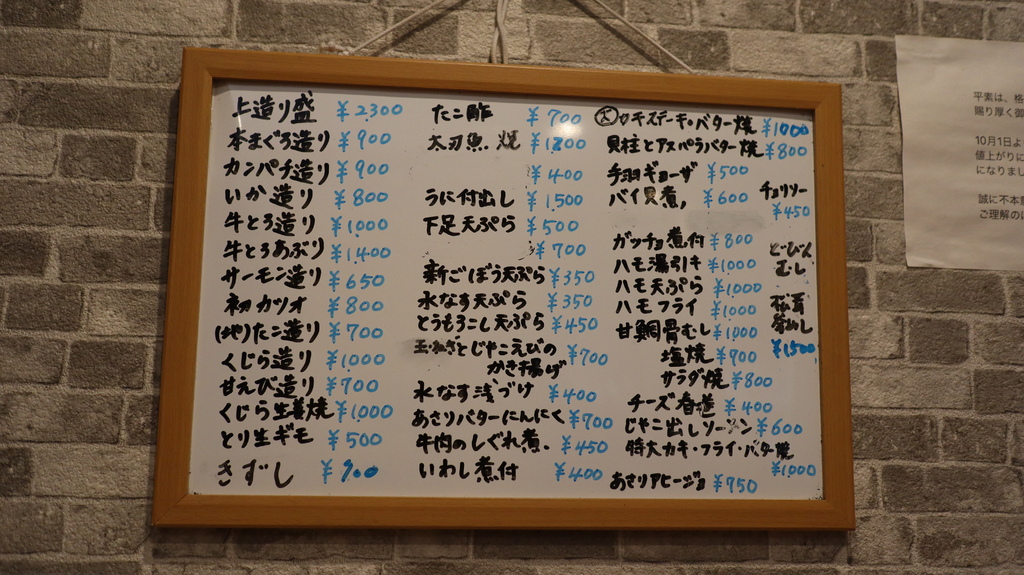 上造り盛 ¥2300
本まぐろ造り ¥900
カンパチ造り ¥900
いか造り ¥800
牛とろ造り ¥1,000
牛とろあぶり ¥1400
サーモン造り ¥650
初カツオ ¥800
(地)たこ造り ¥700
くじら造り ¥1,000
甘えび造り ¥700
くじら生姜焼 ¥1,000
とり生ギモ ¥500
きずし ¥900
たこ酢 ¥700
太刀魚.焼 ¥1,300
¥400
うに付出し ¥1,500
下足天ぷら ¥500
¥700
新ごぼう天ぷら ¥350
水なす天ぷら ¥350
とうもろこし天ぷら ¥450
玉ねぎとじゃこえびの
かき揚げ ¥700
水なす浅づけ ¥400
あさりバターにんにく ¥700
牛肉のしぐれ煮. ¥450
いわし煮付 ¥400
大カキステーキ・バター焼 ¥1000
貝柱とアスパラバター焼 ¥800
手羽ギョーザ ¥500
バイ貝煮, ¥600
ガッチョ煮付 ¥800
ハモ湯引キ ¥1000
ハモ天ぷら ¥1,000
ハモフライ ¥1000
甘鯛骨むし ¥1,000
塩焼 ¥900
サラダ焼 ¥800
チーズ春巻 ¥400
じゃこ出しソーメン ¥600
特大カキ・フライ・バター焼
¥1,000
あさりアヒージョ ¥750
チョリソー
¥450
どびん
むし
松茸
¥1500
平素は、格
賜り厚く御
10月1日よ
値上がりに
になりまし
誠に不本
ご理解の